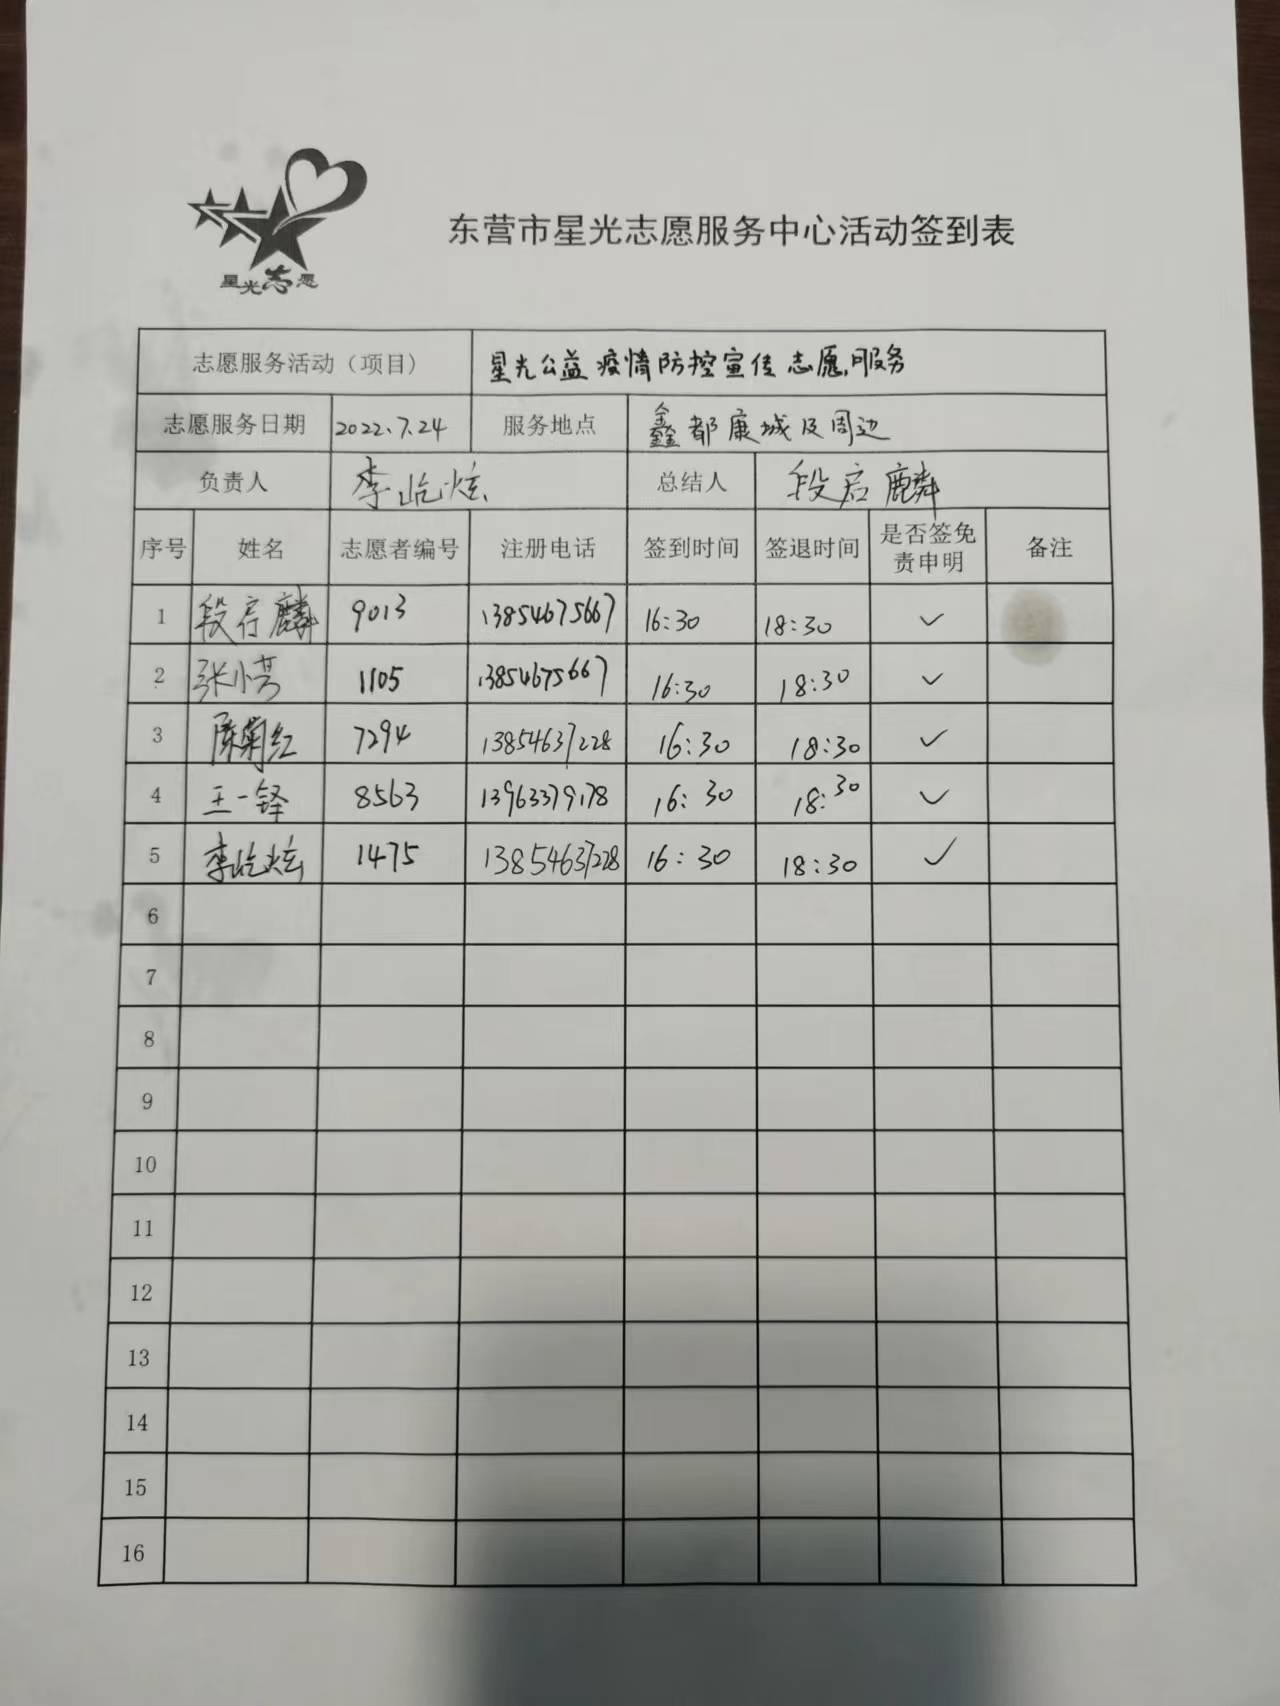 星光志愿
东营市星光志愿服务中心活动签到表
志愿服务活动（项目） 星光公益疫情防控宣传志愿服务
志愿服务日期 2022.7.24 服务地点 鑫都康城及周边
负责人 李屹炫 总结人 段启麟
序号 姓名 志愿者编号 注册电话 签到时间 签退时间 是否签免责申明 备注
1 段启麟 9013 13854675667 16:30 18:30 ✓
2 张小 1105 13854675667 16:30 18:30 ✓
3 陈菊红 7294 13854637228 16:30 18:30 ✓
4 王一铎 8563 13963379178 16:30 18:30 ✓
5 李屹炫 1475 13854637228 16:30 18:30 ✓
6
7
8
9
10
11
12
13
14
15
16